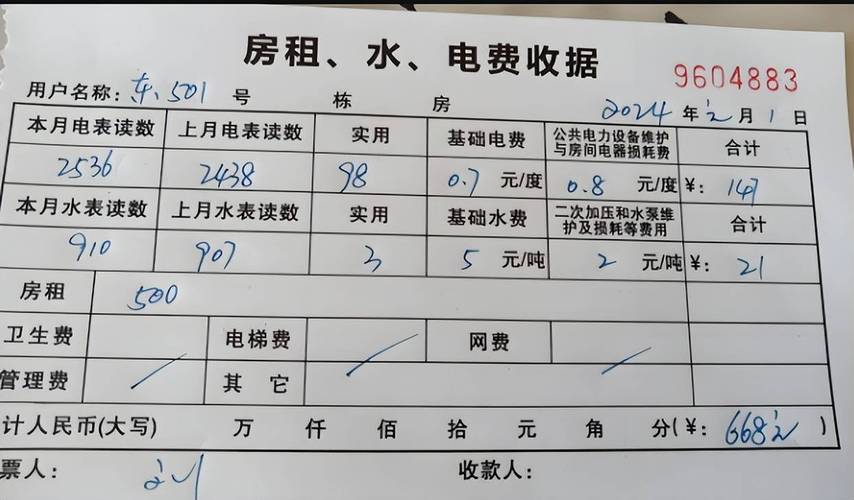 房租、水、电费收据
9604883
用户名称：东501 号 栋 房 2024 年 12 月 1 日
本月电表读数 上月电表读数 实用 基础电费 公共电力设备维护与房间电器损耗费 合计
2536 2438 98 0.7 元/度 0.8 元/度 ¥：147
本月水表读数 上月水表读数 实用 基础水费 二次加压和水泵维护及损耗等费用 合计
910 907 3 5 元/吨 2 元/吨 ¥：21
房租 500
卫生费 电梯费 网费
管理费 其它
计人民币(大写) 万 仟 佰 拾 元 角 分(¥：668元)
票人： 收款人：